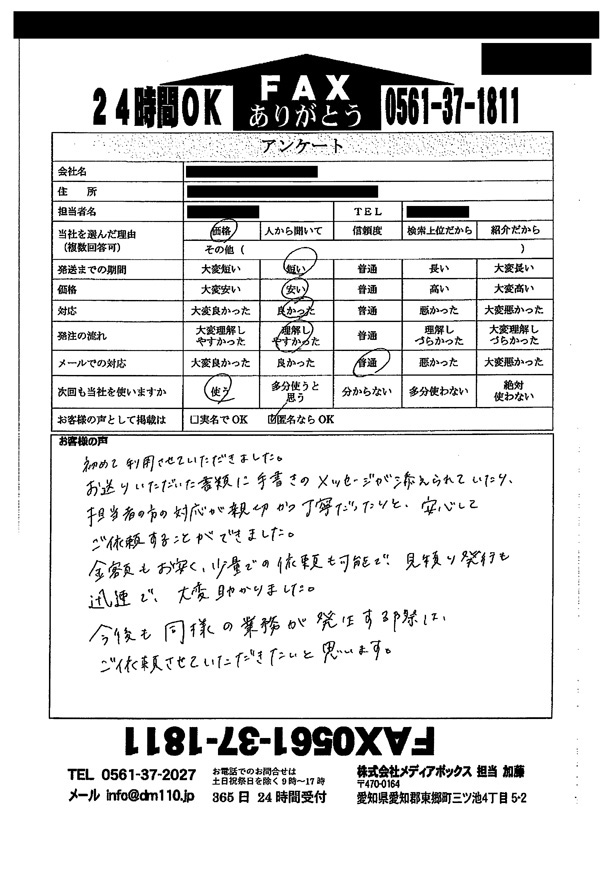 24時間OK
FAX
ありがとう
0561-37-1811
アンケート
会社名
住 所
担当者名 TEL
当社を選んだ理由(複数回答可) 価格 人から聞いて 信頼度 検索上位だから 紹介だから
その他 ( )
発送までの期間 大変短い 短い 普通 長い 大変長い
価格 大変安い 安い 普通 高い 大変高い
対応 大変良かった 良かった 普通 悪かった 大変悪かった
発注の流れ 大変理解しやすかった 理解しやすかった 普通 理解しづらかった 大変理解しづらかった
メールでの対応 大変良かった 良かった 普通 悪かった 大変悪かった
次回も当社を使いますか 使う 多分使うと思う 分からない 多分使わない 絶対使わない
お客様の声として掲載は □実名でOK ☑匿名ならOK
お客様の声
初めて利用させていただきました。
お送りいただいた書類に手書きのメッセージが添えられていたり、
担当者の方の対応が親切かつ丁寧だったりと、安心して
ご依頼することができました。
金額もお安く、少量での依頼も可能で、見積り発行も
迅速で、大変助かりました。
今後も同様の業務が発生する際に、
ご依頼させていただきたいと思います。
FAX0561-37-1811
TEL 0561-37-2027
メール info@dm110.jp
お電話でのお問合せは
土日祝祭日を除く9時~17時
365日 24時間受付
株式会社メディアボックス 担当 加藤
〒470-0164
愛知県愛知郡東郷町三ツ池4丁目5-2